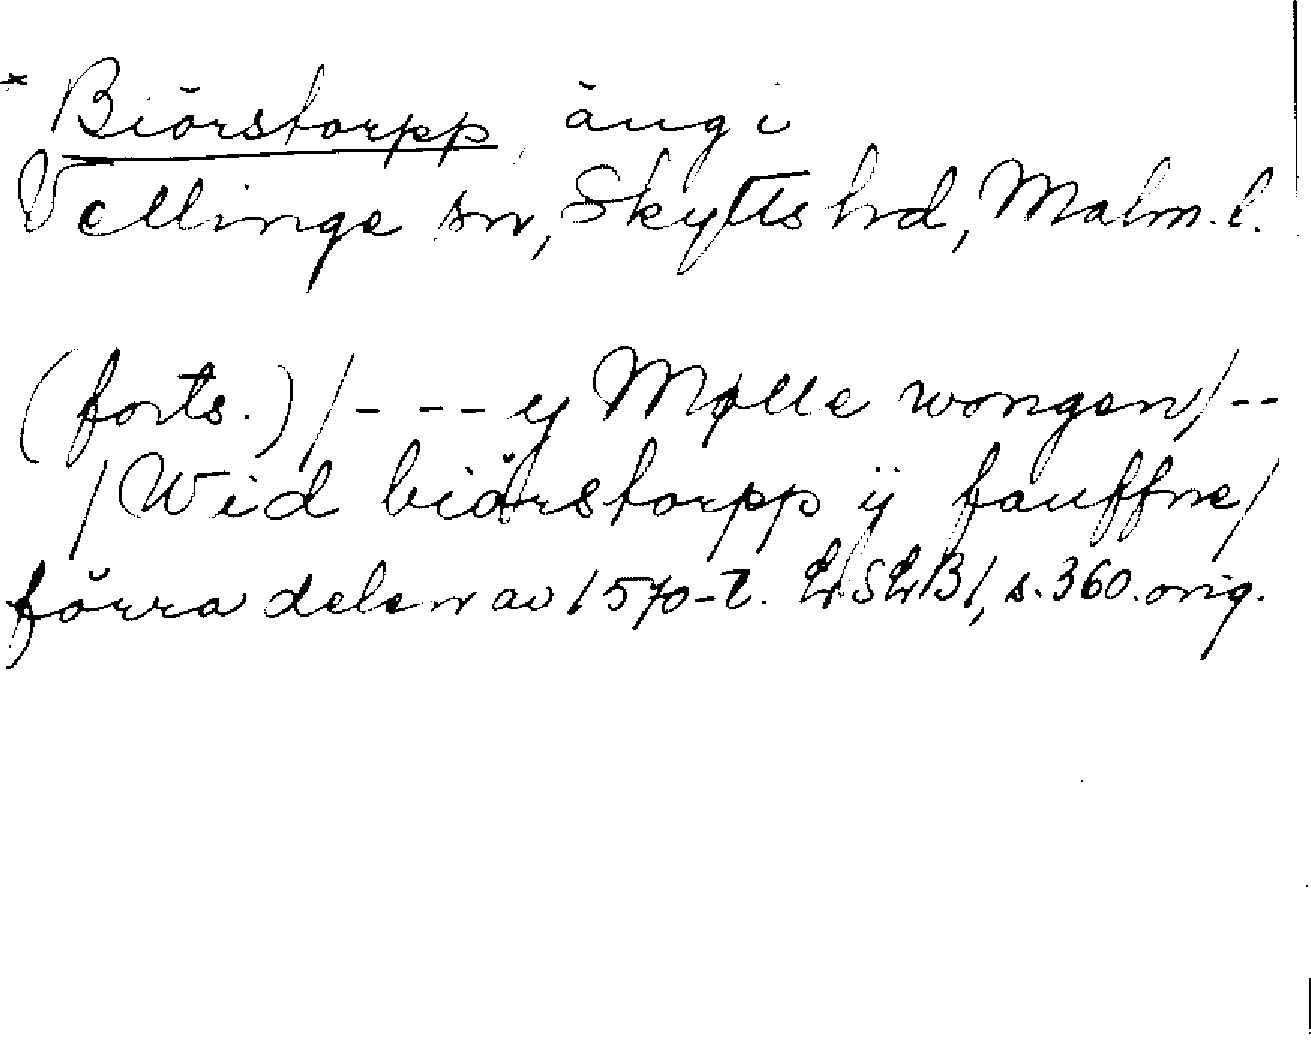 * Biörstorpp, äng i
Vellinge sn, Skytts hd, Malm. l.
(forts.) /- - - y Mølle wongen/ --
/Wid biörstorpp ÿ fauffne/
förra delen av 1570-t. LSLB 1, s. 360. orig.